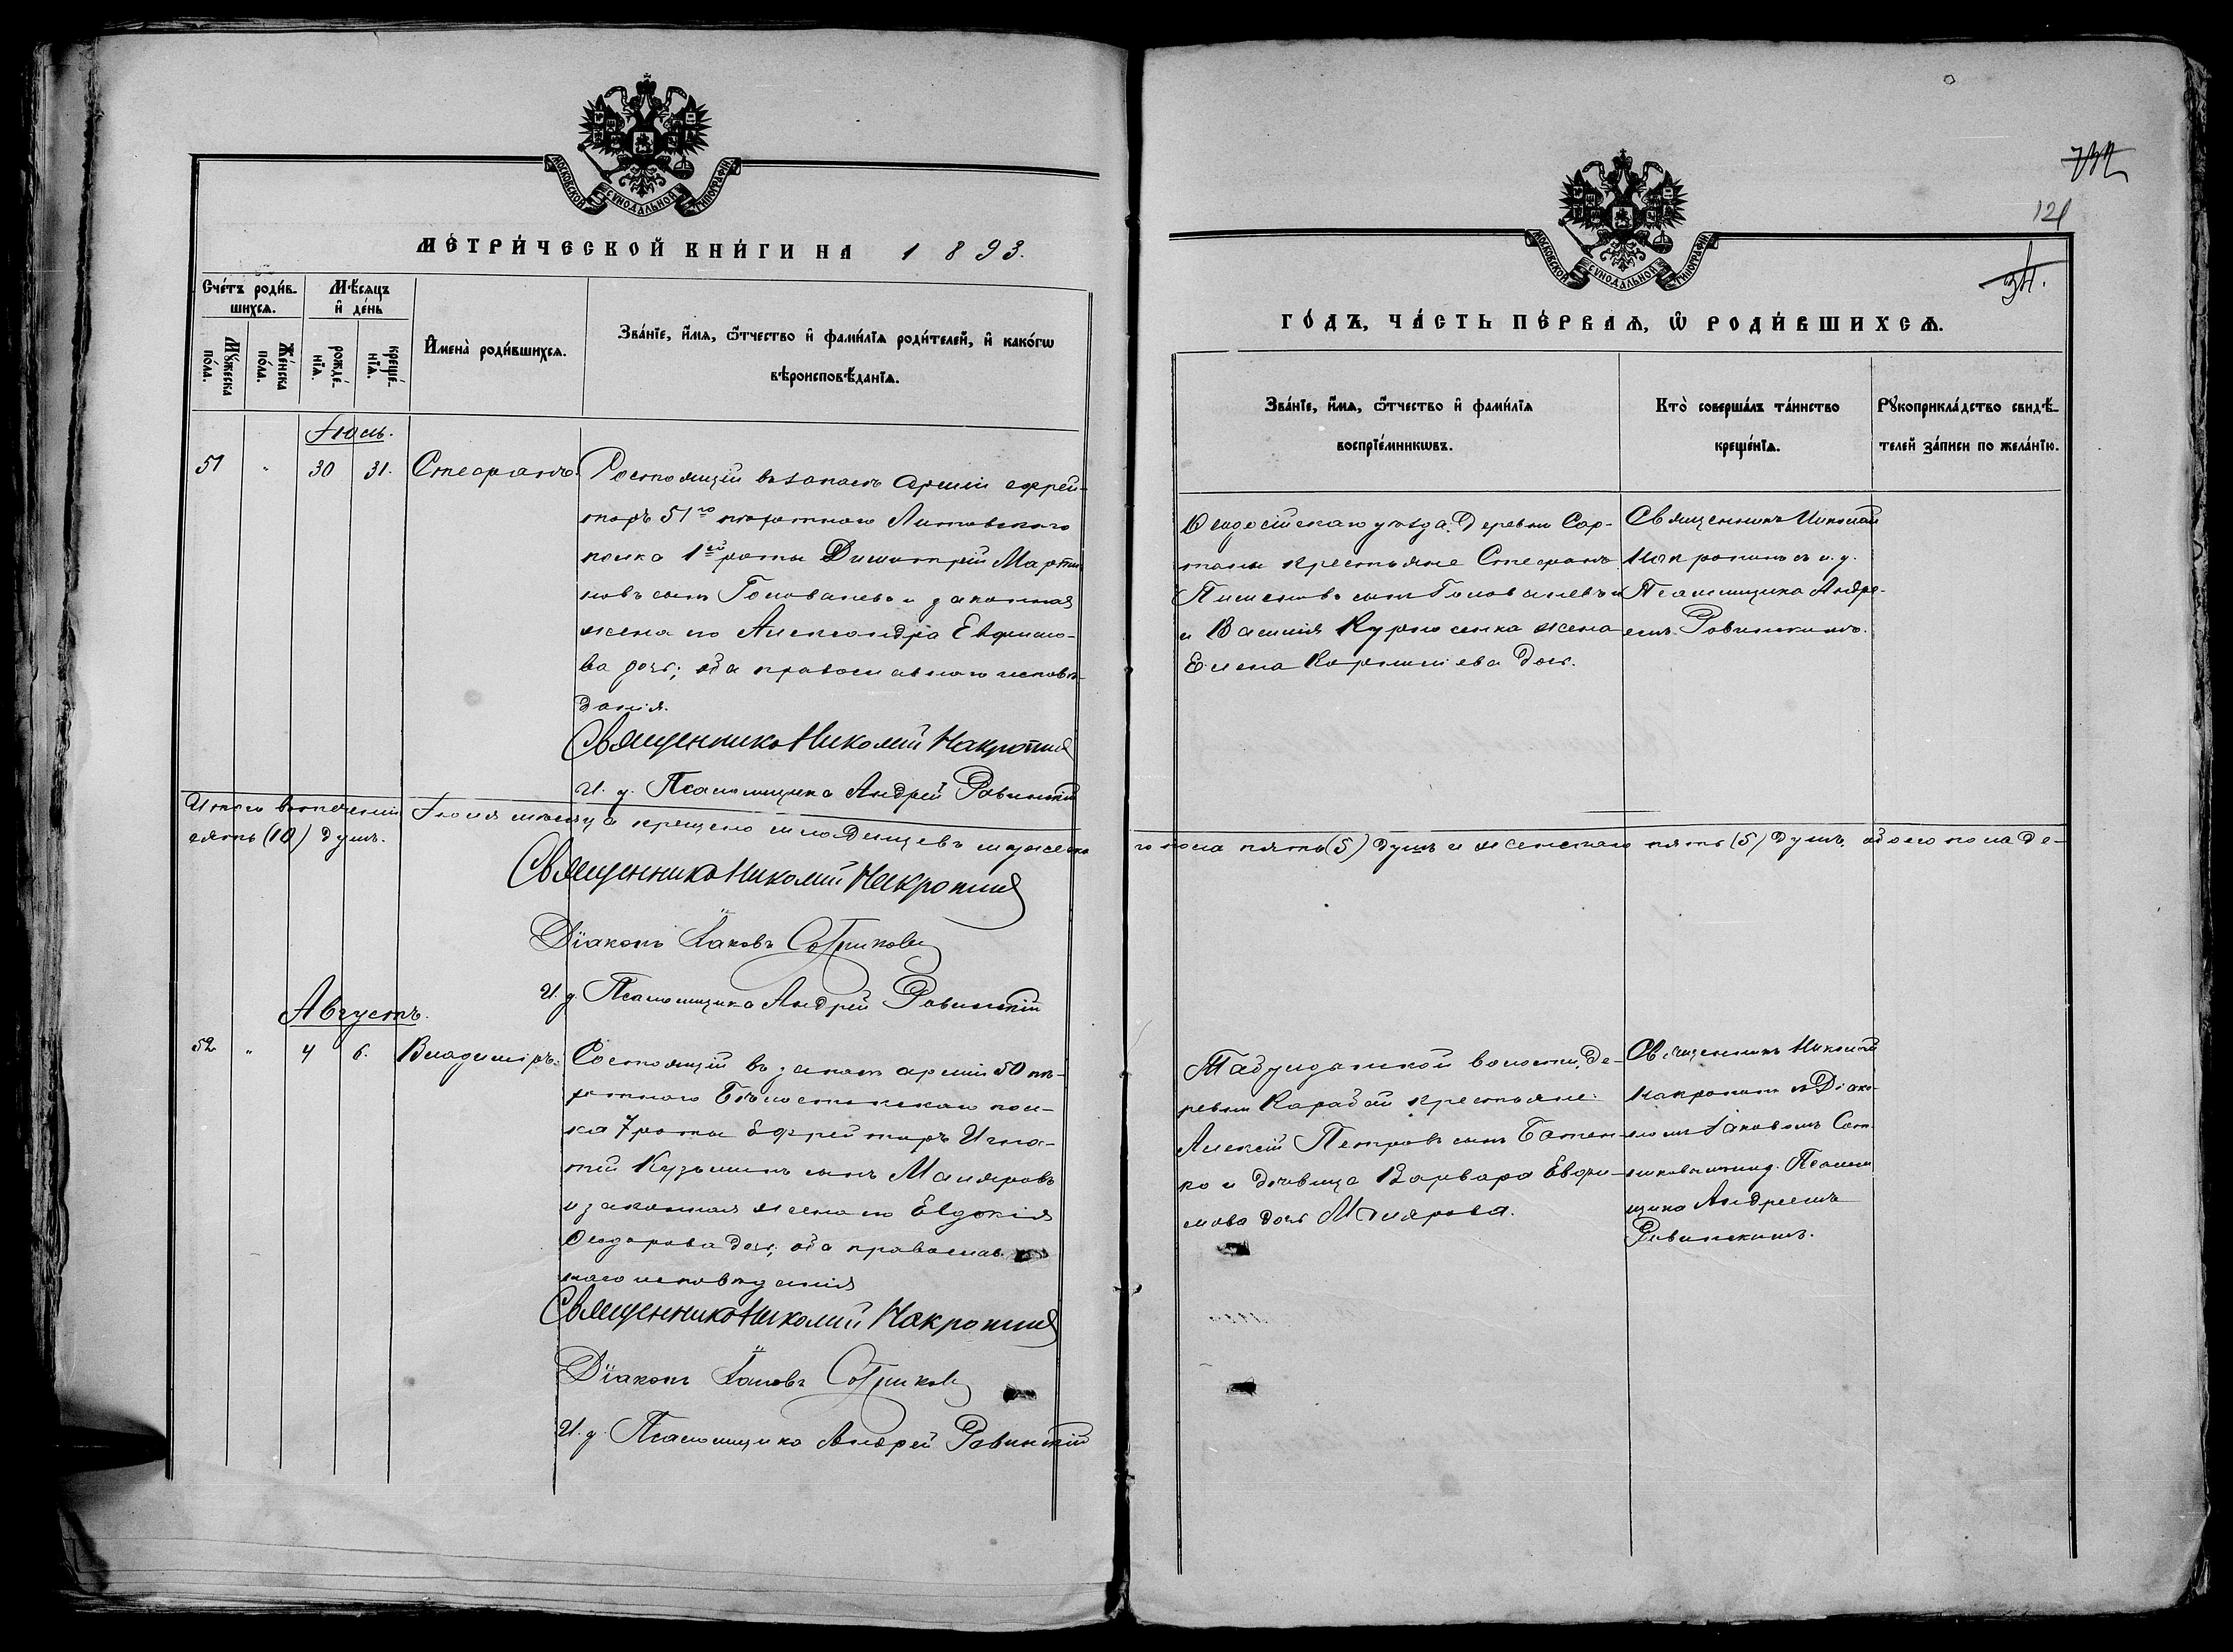 МОСКОВСКОЙ СѴНОДАЛЬНОЙ ТИПОГРАФІИ
МЕТРИ́ЧЕСКОЙ КНИ́ГИ НА 1893.
Сче́тъ роди́вшихся.
Мѣ́сяцъ и҆ де́нь
Мꙋ́жеска по́ла.
Же́нска по́ла.
рожде́нїѧ.
креще́нїѧ.
И҆мена̀ роди́вшихсѧ.
Зва́нїе, и҆́мѧ, ѻ҆́тчество и҆ фами́лїѧ роди́телей, и҆ како́гѡ
вѣроисповѣ́данїѧ.
Іюль.
51 " 30 31. Стефанъ.
Состоящій въ запасѣ Арміи ефрей-
торъ 51го пѣхотнаго Литовскаго
полка 1ей роты Димитрій Марти
новъ сынъ Голованевъ и законная
жена его Александра Евфимо-
ва дочь; оба православнаго исповѣ-
данія.
Священникъ Николай Накропинъ
И. д. Псаломщика Андрей Ровинскій
Итого въ теченіи Іюля мѣсяца крещено младенцевъ мужеска
го пола пять (5) душъ и женскаго пять (5) душъ, обоего пола де-
сять (10) душъ.
Священникъ Николай Накропинъ
Діаконъ Іаковъ Сотниковъ
И. д. Псаломщика Андрей Ровинскій
Августъ.
52 " 4 6. Владиміръ.
Состоящій въ запасѣ арміи 50 пѣ-
хотнаго Бѣлостокскаго пол-
ка 7 роты Ефрейторъ Игна-
тій Кузьминъ сынъ Маляровъ
и законная жена его Евдокія
Ѳеодорова дочь; оба православ-
наго исповѣданія
Священникъ Николай Накропинъ
Діаконъ Іаковъ Сотниковъ
И. д. Псаломщика Андрей Ровинскій
121
МОСКОВСКОЙ СѴНОДАЛЬНОЙ ТИПОГРАФІИ
ГО́ДЪ, ЧА́СТЬ ПЕ́РВАѦ, Ѡ҆ РОДИ́ВШИХСѦ.
Зва́нїе, и҆́мѧ, ѻ҆́тчество и҆ фами́лїѧ
воспрїе́мникѡвъ.
Кто̀ соверша́лъ та́инство
креще́нїѧ.
Рꙋкоприкла́дство свидѣ́-
телей за́писи по жела́нїю.
Ѳеодосійскаго уѣзда, Деревни Сар-
таны крестьяне Стефанъ
сынъ Голованевъ и
и Василія Курносенка жена
Елена Корнилиева дочь.
Священникъ Николай
Накропинъ съ и. д.
Псаломщика Андре-
емъ Ровинскимъ.
Табулдынской волости, де-
ревни Карабай крестьяне:
Алексій Петровъ сынъ Батен-
ко и дѣвица Варвара Евфи-
мова дочь Малярова.
Священникъ Николай
Накропинъ съ Діако-
номъ Іаковомъ Сот-
никовымъ и и. д. Псалом
щика Андреемъ
Ровинскимъ.